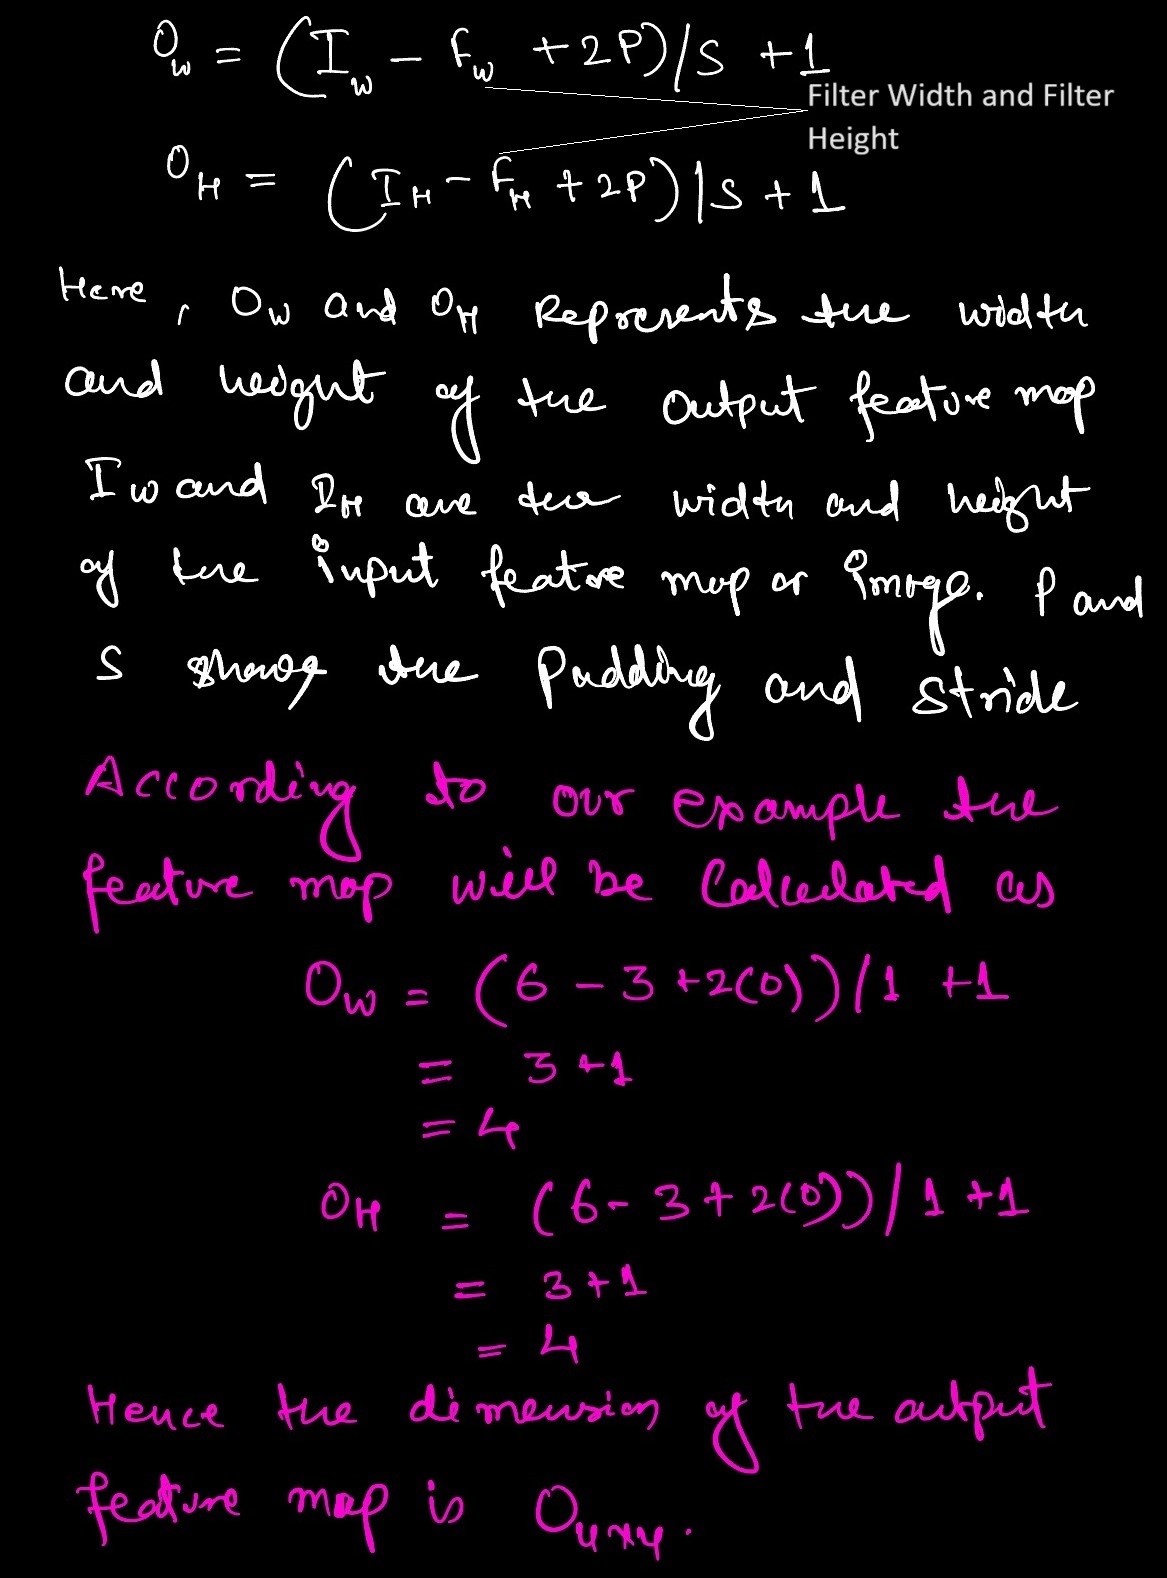 O_W = (I_W - F_W + 2P)/S + 1
Filter Width and Filter
Height
O_H = (I_H - F_H + 2P)/S + 1
Here, O_W and O_H Represents the width
and height of the output feature map
I_W and I_H are the width and height
of the input feature map or image. P and
S shows the Padding and stride
According to our example the
feature map will be Calculated as
O_W = (6 - 3 + 2(0))/1 + 1
= 3 + 1
= 4
O_H = (6 - 3 + 2(0))/1 + 1
= 3 + 1
= 4
Hence the dimension of the output
feature map is O_4x4.